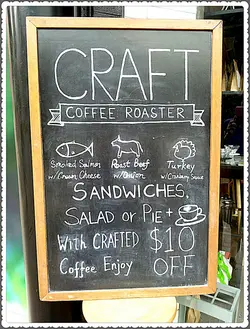 CRAFT
COFFEE ROASTER
Smoked Salmon Roast Beef Turkey
w/Cream Cheese w/Onion w/Cranberry Sauce
SANDWICHES
SALAD or PIE +
With CRAFTED $10
Coffee Enjoy OFF